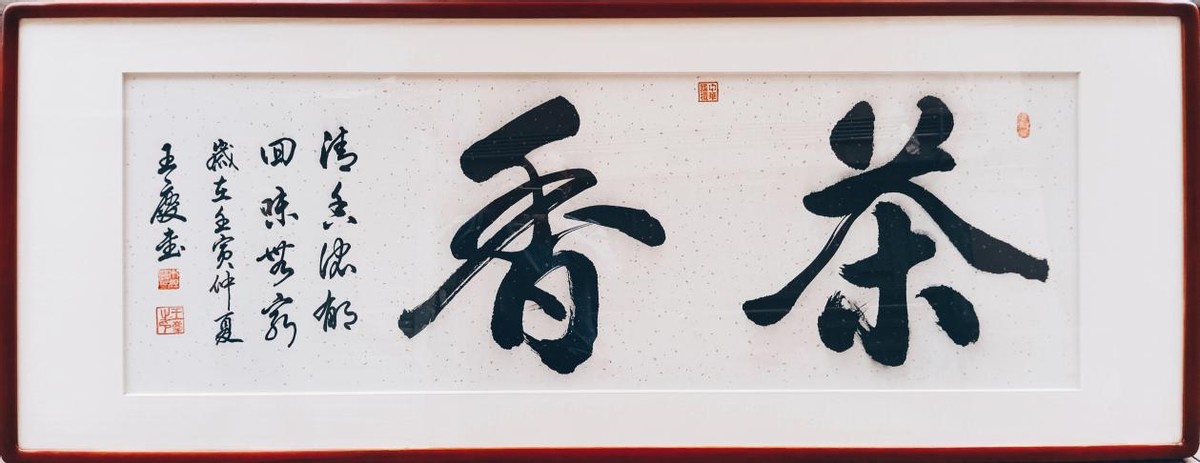 茶香
清香浓郁
回味无穷
岁在壬寅仲夏
王庆书